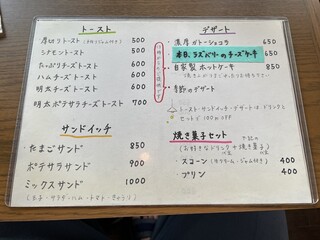 トースト
・厚切りトースト (ジャム付き) 500
・シナモントースト 500
・たっぷりチーズトースト 600
・ハムチーズトースト 600
・明太チーズトースト 600
・明太ポテサラチーズトースト 700
サンドイッチ
・たまごサンド 850
・ポテサラサンド 900
・ミックスサンド 1000
(玉子・サラダ・ハム・トマト・きゅうり)
デザート
・濃厚ガトーショコラ 650
本日、ラズベリーのチーズケーキ 650
・自家製ホットケーキ 850
・季節のデザート
トースト・サンドイッチ・デザートは ドリンクと
セットで 100円OFF
焼き菓子セット
(お好きなドリンク + 焼き菓子)
・スコーン 400
・プリン 400